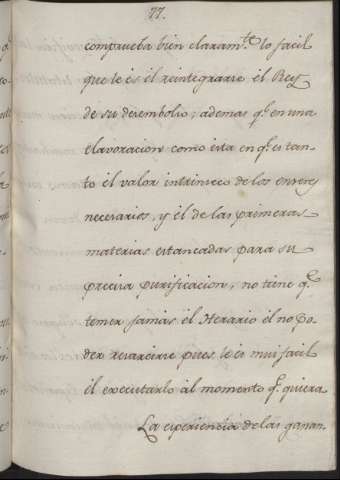 77.
comprueba bien claramte. lo facil
que le és el reintegrarse el Rey
de su desembolso; ademas qe. en una
elavoracion como esta en qe. es tan-
to el valor intrinseco de los enseres
necesarios, y él de las primeras
materias estancadas para su
precisa purificacion, no tiene qe.
temer jamás el Herario el no po-
der resarcirse pues le es mui facil
él executarlo al momento qe. quiera
La experiencia de las ganan-